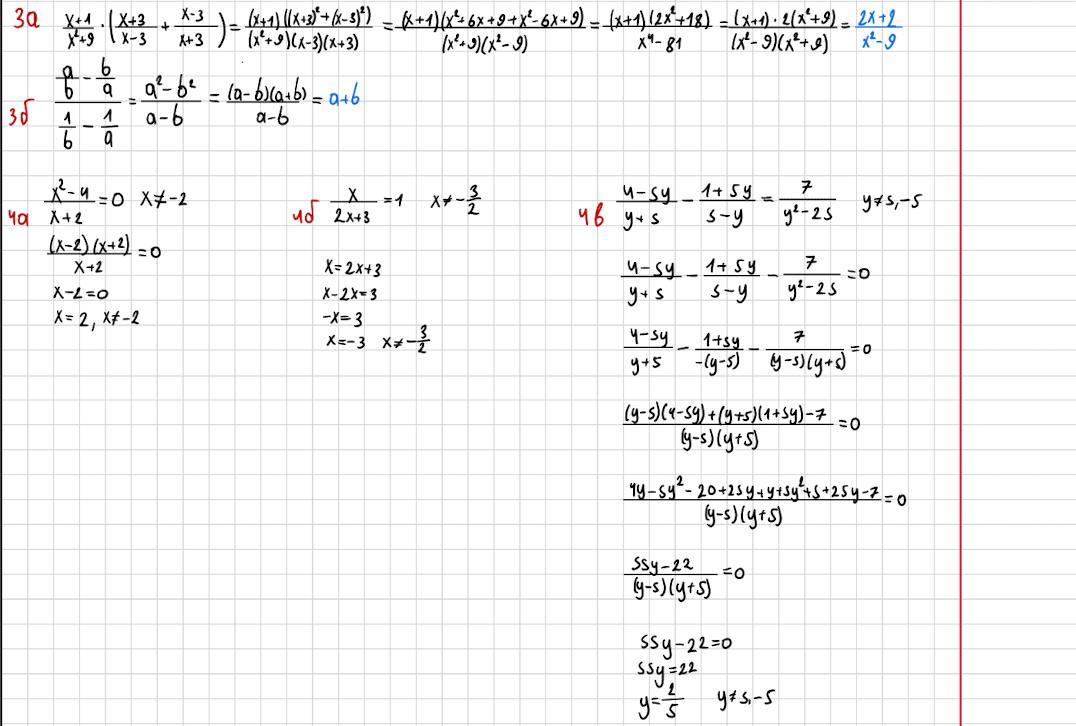 3а (x+1)/(x²+9) · ((x+3)/(x-3) + (x-3)/(x+3)) = (x+1)((x+3)²+(x-3)²)/((x²+9)(x-3)(x+3)) = (x+1)(x²+6x+9+x²-6x+9)/((x²+9)(x²-9)) = (x+1)(2x²+18)/(x⁴-81) = (x+1)·2(x²+9)/((x²-9)(x²+9)) = (2x+2)/(x²-9)
3б (a/b - b/a)/(1/b - 1/a) = (a²-b²)/(a-b) = (a-b)(a+b)/(a-b) = a+b
4а (x²-4)/(x+2) = 0 x≠-2
(x-2)(x+2)/(x+2) = 0
x-2=0
x=2, x≠-2
4б x/(2x+3) = 1 x≠-3/2
x=2x+3
x-2x=3
-x=3
x=-3 x≠-3/2
4в (4-5y)/(y+5) - (1+5y)/(5-y) = 7/(y²-25) y≠5,-5
(4-5y)/(y+5) - (1+5y)/(5-y) - 7/(y²-25) = 0
(4-5y)/(y+5) - (1+5y)/(-(y-5)) - 7/((y-5)(y+5)) = 0
((y-5)(4-5y)+(y+5)(1+5y)-7)/((y-5)(y+5)) = 0
(4y-5y²-20+25y+y+5y²+5+25y-7)/((y-5)(y+5)) = 0
(55y-22)/((y-5)(y+5)) = 0
55y-22=0
55y=22
y=2/5 y≠5,-5